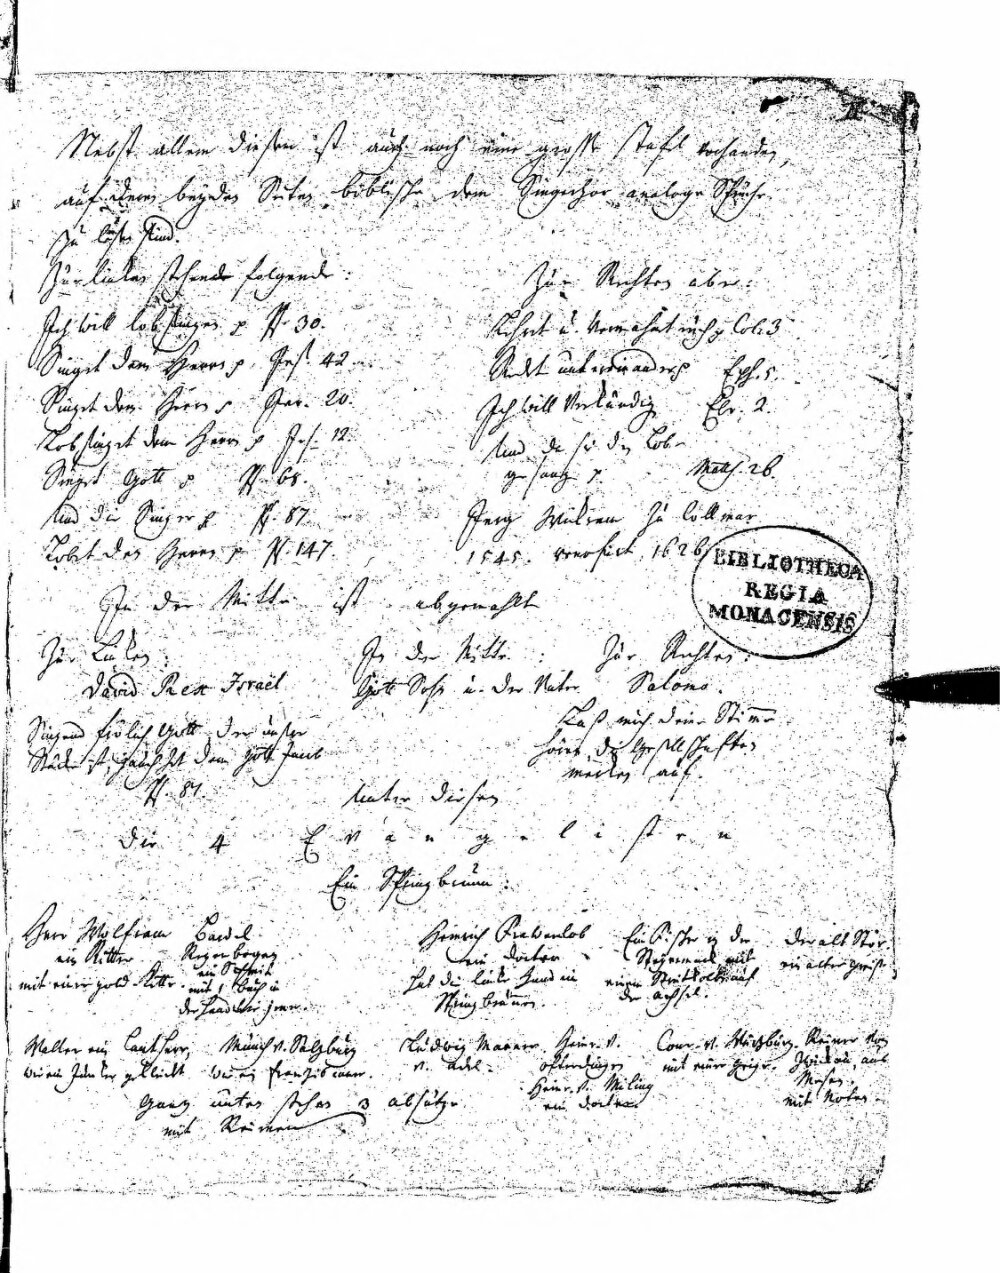 II
Nebst allem diesen ist auch noch eine grosse Tafel vorhanden,
auf deren beyden Seiten biblische dem Singechor analoge Sprüche
zu lesen sind.
Zur linken stehende folgende:
Ich will lobsingen p Ps. 30.
Singet dem Herrn p. Jes. 42
Singet dem Herrn p Jer. 20.
Lobsinget dem Herrn p Jes. 12.
Singet Gott p Ps. 68.
Und die Singer p Ps. 87
Lobet den Herrn p Ps. 147
Zur Rechten aber:
Lehret u. vermahnet euch p Col. 3
Redet untereinander p Eph. 5.
Ich will verkündig Ebr. 2.
Und da sie den Lob-
gesang p. Math. 26.
Jerg Wickram zu Collmar
1545. renofirt 1626
BIBLIOTHECA
REGIA
MONACENSIS
In der Mitte ist abgemahlt
Zur Linken:
David Rex Israel
Singend frölich Gott der unser
Stärke ist, jauchzet dem Gott Jacob
Ps. 81.
In der Mitte:
Gott Sohn u. der Vater
Zur Rechten:
Salomo.
Laß mich deine Stimme
hören, die Gesellschaften
merken auf.
Unter diesen
Die 4 Evangelisten
Ein Springbrunn:
Herr Wolfram
ein Ritter
mit einer gold Kette.
Bardel
Regenbogen
ein Schmit
mit 1 Buch in
der Hand
Heinrich Frawenlob
ein Doctor
hat die linke Hand im
Springbrunnen.
Ein Fischer in der
Steyermark mit
einem Streitkolben auf
der Achsel.
Der alt Stol
ein alter Greiß
Walter ein Lantherr,
wie ein Junker gekleidt
Münch v. Salzburg
wie ein Franziscaner.
Ludwig Marner
v. Adel.
Heinr. v.
Ofterdingen
Heinr. v. Müling
ein Doctor.
Conr. v. Würzburg
mit einer Geige.
Reimer von
Zwickau, aus
Meken.
mit Noten.
Ganz unten stehen 3 absätze
mit Reimen